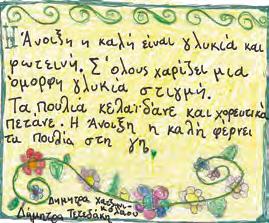 Η Άνοιξη η καλή είναι γλυκιά και
φωτεινή. Σ' όλους χαρίζει μια
όμορφη γλυκιά στιγμή.
Τα πουλιά κελαϊδάνε και χορευτικά
πετάνε. Η Άνοιξη η καλή φέρνει
τα πουλιά στη γη.
Δήμητρα
Δήμητρα Τετεδάκη